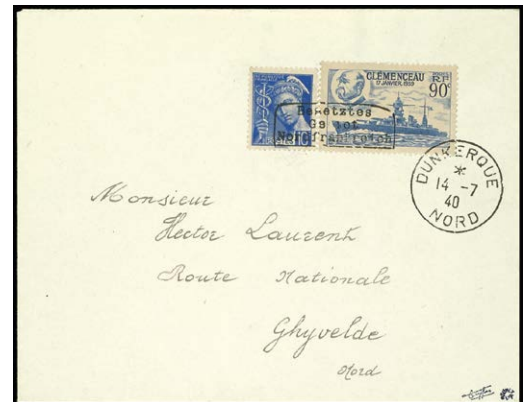 CLEMENCEAU
17 JANVIER 1939
RF
90c
Besetztes
Gebiet
Nordfrankreich
DUNKERQUE
*
14 -7
40
NORD
Monsieur
Hector Laurent
Route Nationale
Ghyvelde
Nord